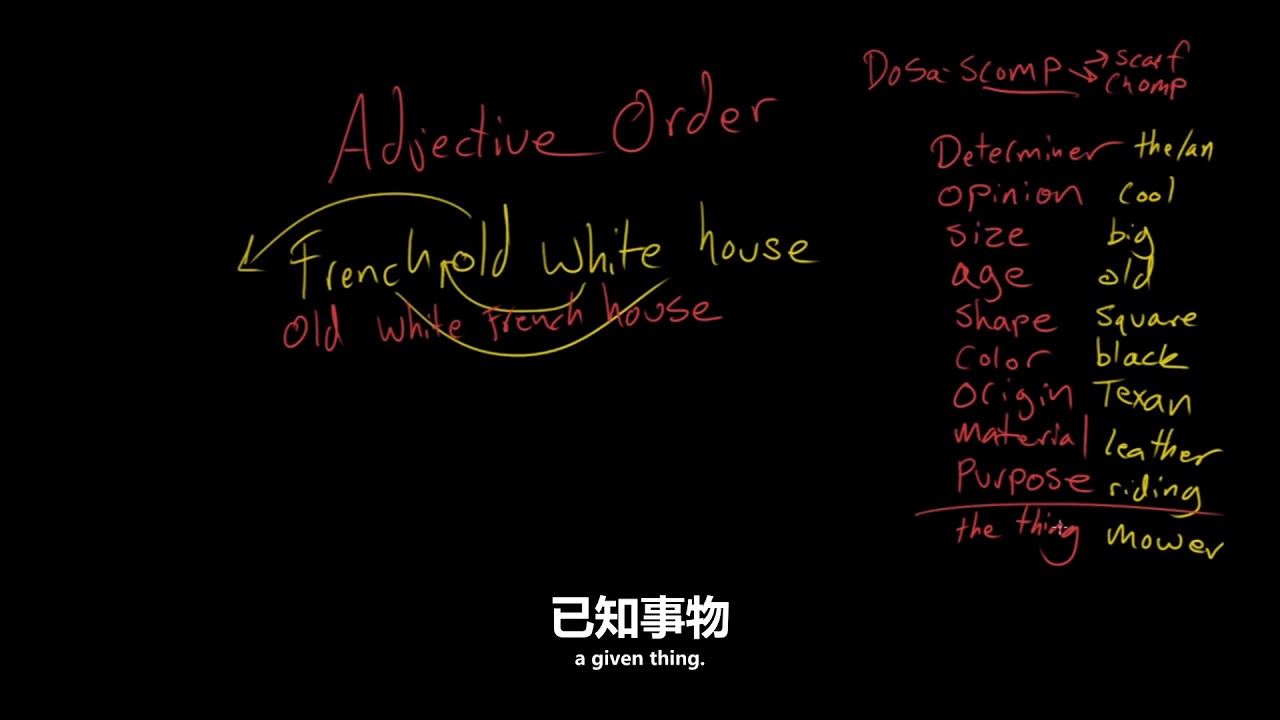 Adjective Order
French old white house
Old white French house
DoSa-SComp → scarf
→ Chomp
Determiner the/an
opinion cool
size big
age old
shape square
color black
origin Texan
material leather
Purpose riding
the thing mower
已知事物
a given thing.